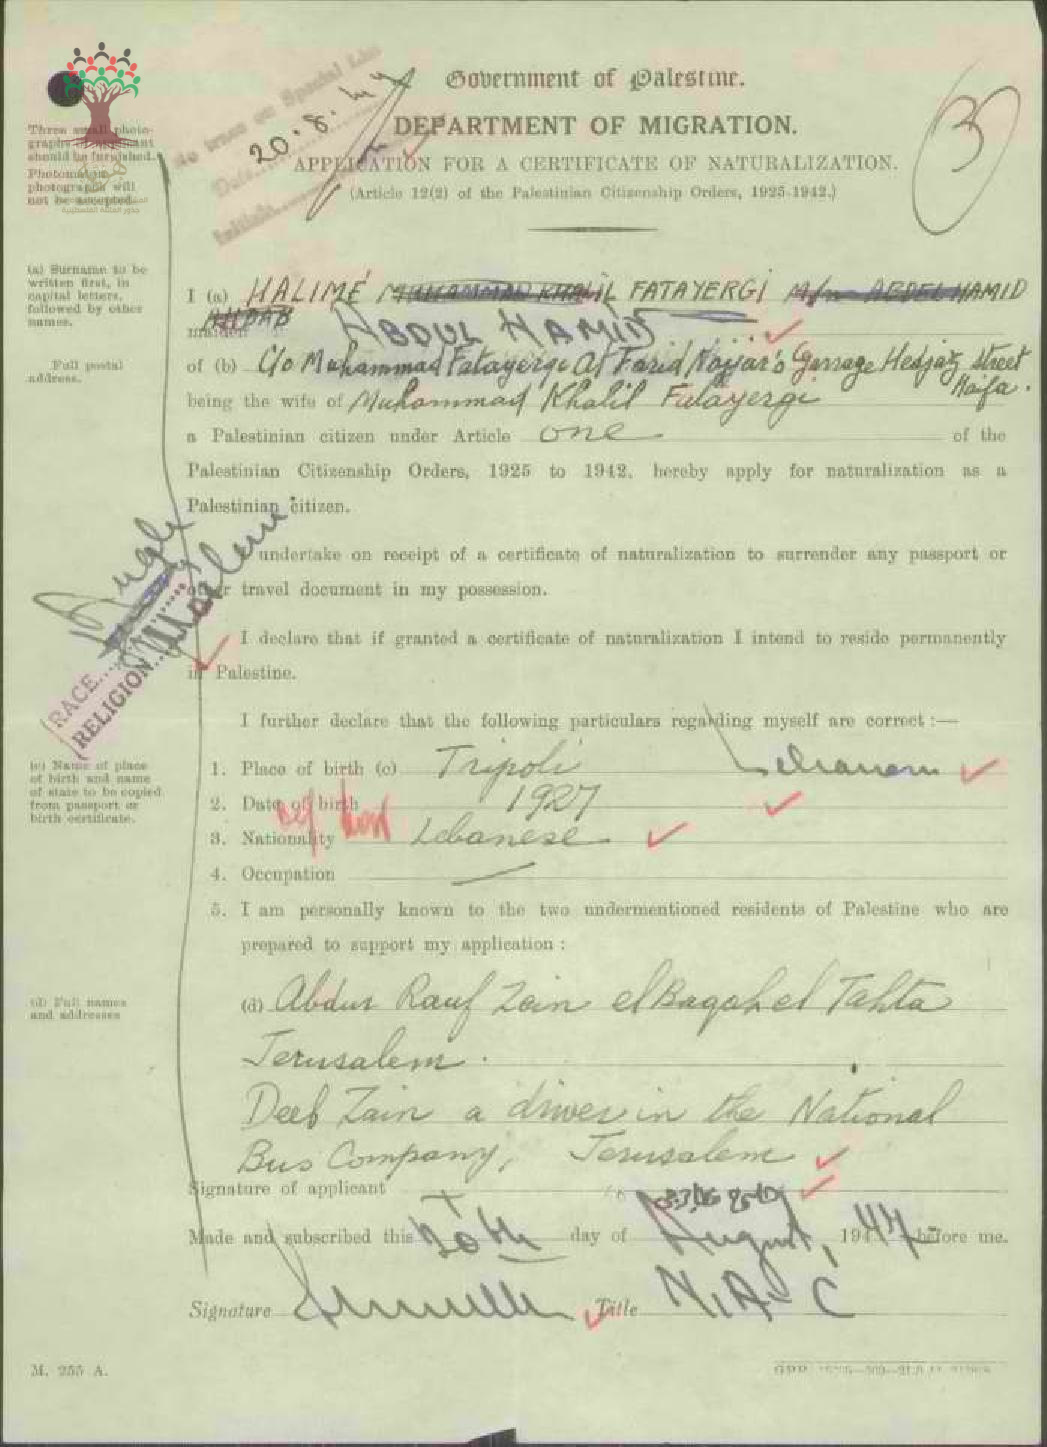 Government of Palestine.
DEPARTMENT OF MIGRATION.
APPLICATION FOR A CERTIFICATE OF NATURALIZATION.
(Article 12(2) of the Palestinian Citizenship Orders, 1925-1942.)
No trace on Special List
Date 20.8.47
Initials
3
Three small photographs of applicant should be furnished.
Photomaton photograph will not be accepted.
(a) Surname to be written first, in capital letters, followed by other names.
I (a) HALIMÉ MUHAMMAD KHALIL FATAYERGI M/n ABDEL HAMID
maiden AHDAB ABDUL HAMID
Full postal address.
of (b) C/o Muhammad Fatayergi At Farid Najjar's Garrage Hedjaz Street
Haifa.
being the wife of Muhammad Khalil Fatayergi
a Palestinian citizen under Article one of the
Palestinian Citizenship Orders, 1925 to 1942, hereby apply for naturalization as a
Palestinian citizen.
undertake on receipt of a certificate of naturalization to surrender any passport or
other travel document in my possession.
I declare that if granted a certificate of naturalization I intend to reside permanently
in Palestine.
RACE
RELIGION Moslem
I further declare that the following particulars regarding myself are correct :—
(c) Name of place of birth and name of state to be copied from passport or birth certificate.
1. Place of birth (c) Tripoli Lebanon
2. Date of birth 1927
3. Nationality Lebanese
4. Occupation
5. I am personally known to the two undermentioned residents of Palestine who are
prepared to support my application :
(d) Full names and addresses
(d) Abdur Rauf Zain el Baqah el Tahta
Jerusalem.
Deeb Zain a driver in the National
Bus Company, Jerusalem
Signature of applicant
Made and subscribed this 20th day of August, 1947 before me.
Signature Title
M. 255 A.